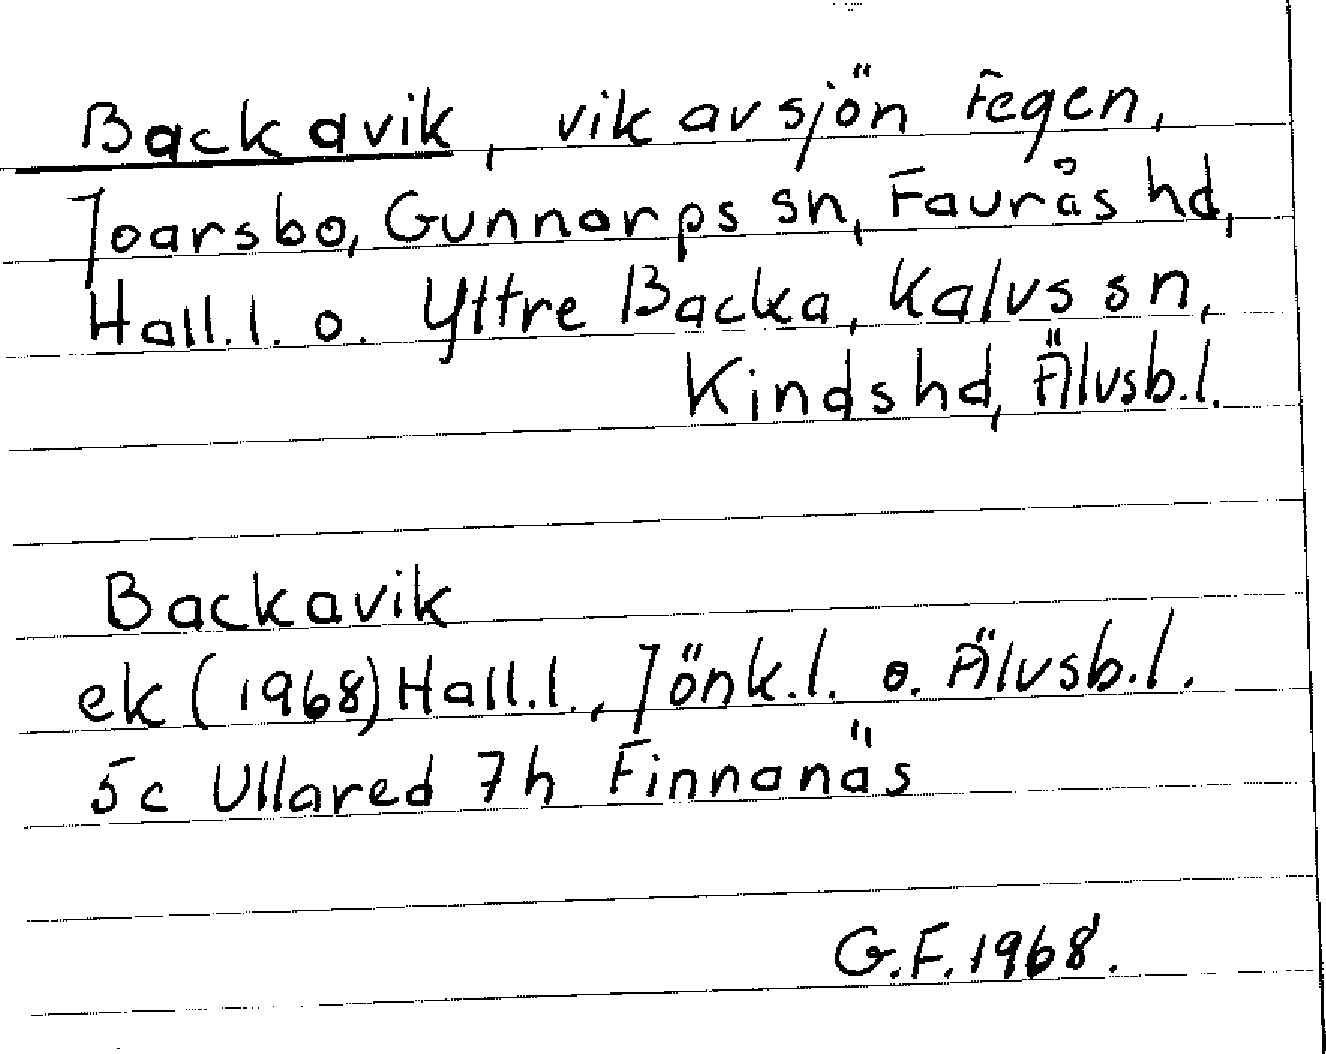 Backavik, vik av sjön Fegen,
Joarsbo, Gunnarps sn, Faurås hd,
Hall.l. o. Yttre Backa, Kalvs sn,
Kinds hd, Älvsb.l.
Backavik
ek (1968) Hall.l., Jönk.l. o. Älvsb.l.
5c Ullared 7h Finnanäs
G.F. 1968.